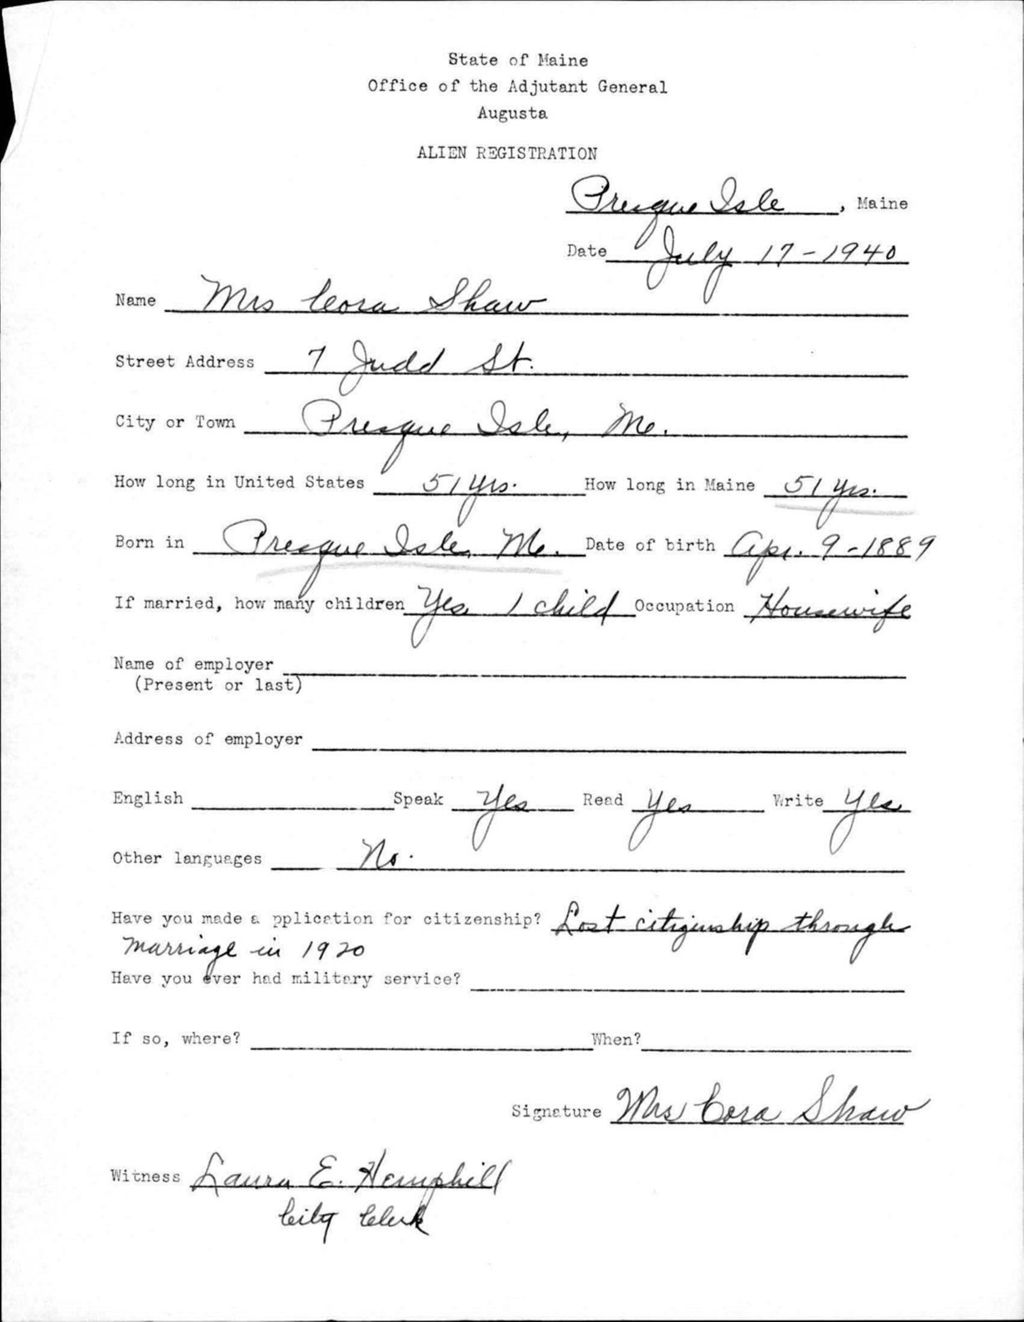 State of Maine
Office of the Adjutant General
Augusta
ALIEN REGISTRATION
Presque Isle, Maine
Date July 17-1940
Name Mrs Cora Shaw
Street Address 7 Judd St.
City or Town Presque Isle, Me.
How long in United States 51 yrs. How long in Maine 51 yrs.
Born in Presque Isle, Me. Date of birth Apr. 9-1889
If married, how many children Yes, 1 child Occupation Housewife
Name of employer
(Present or last)
Address of employer
English Speak Yes Read Yes Write Yes
Other languages No.
Have you made a pplication for citizenship? Lost citizenship through
marriage in 1920
Have you ever had military service?
If so, where? When?
Signature Mrs Cora Shaw
Witness Laura E. Hemphill
City Clerk